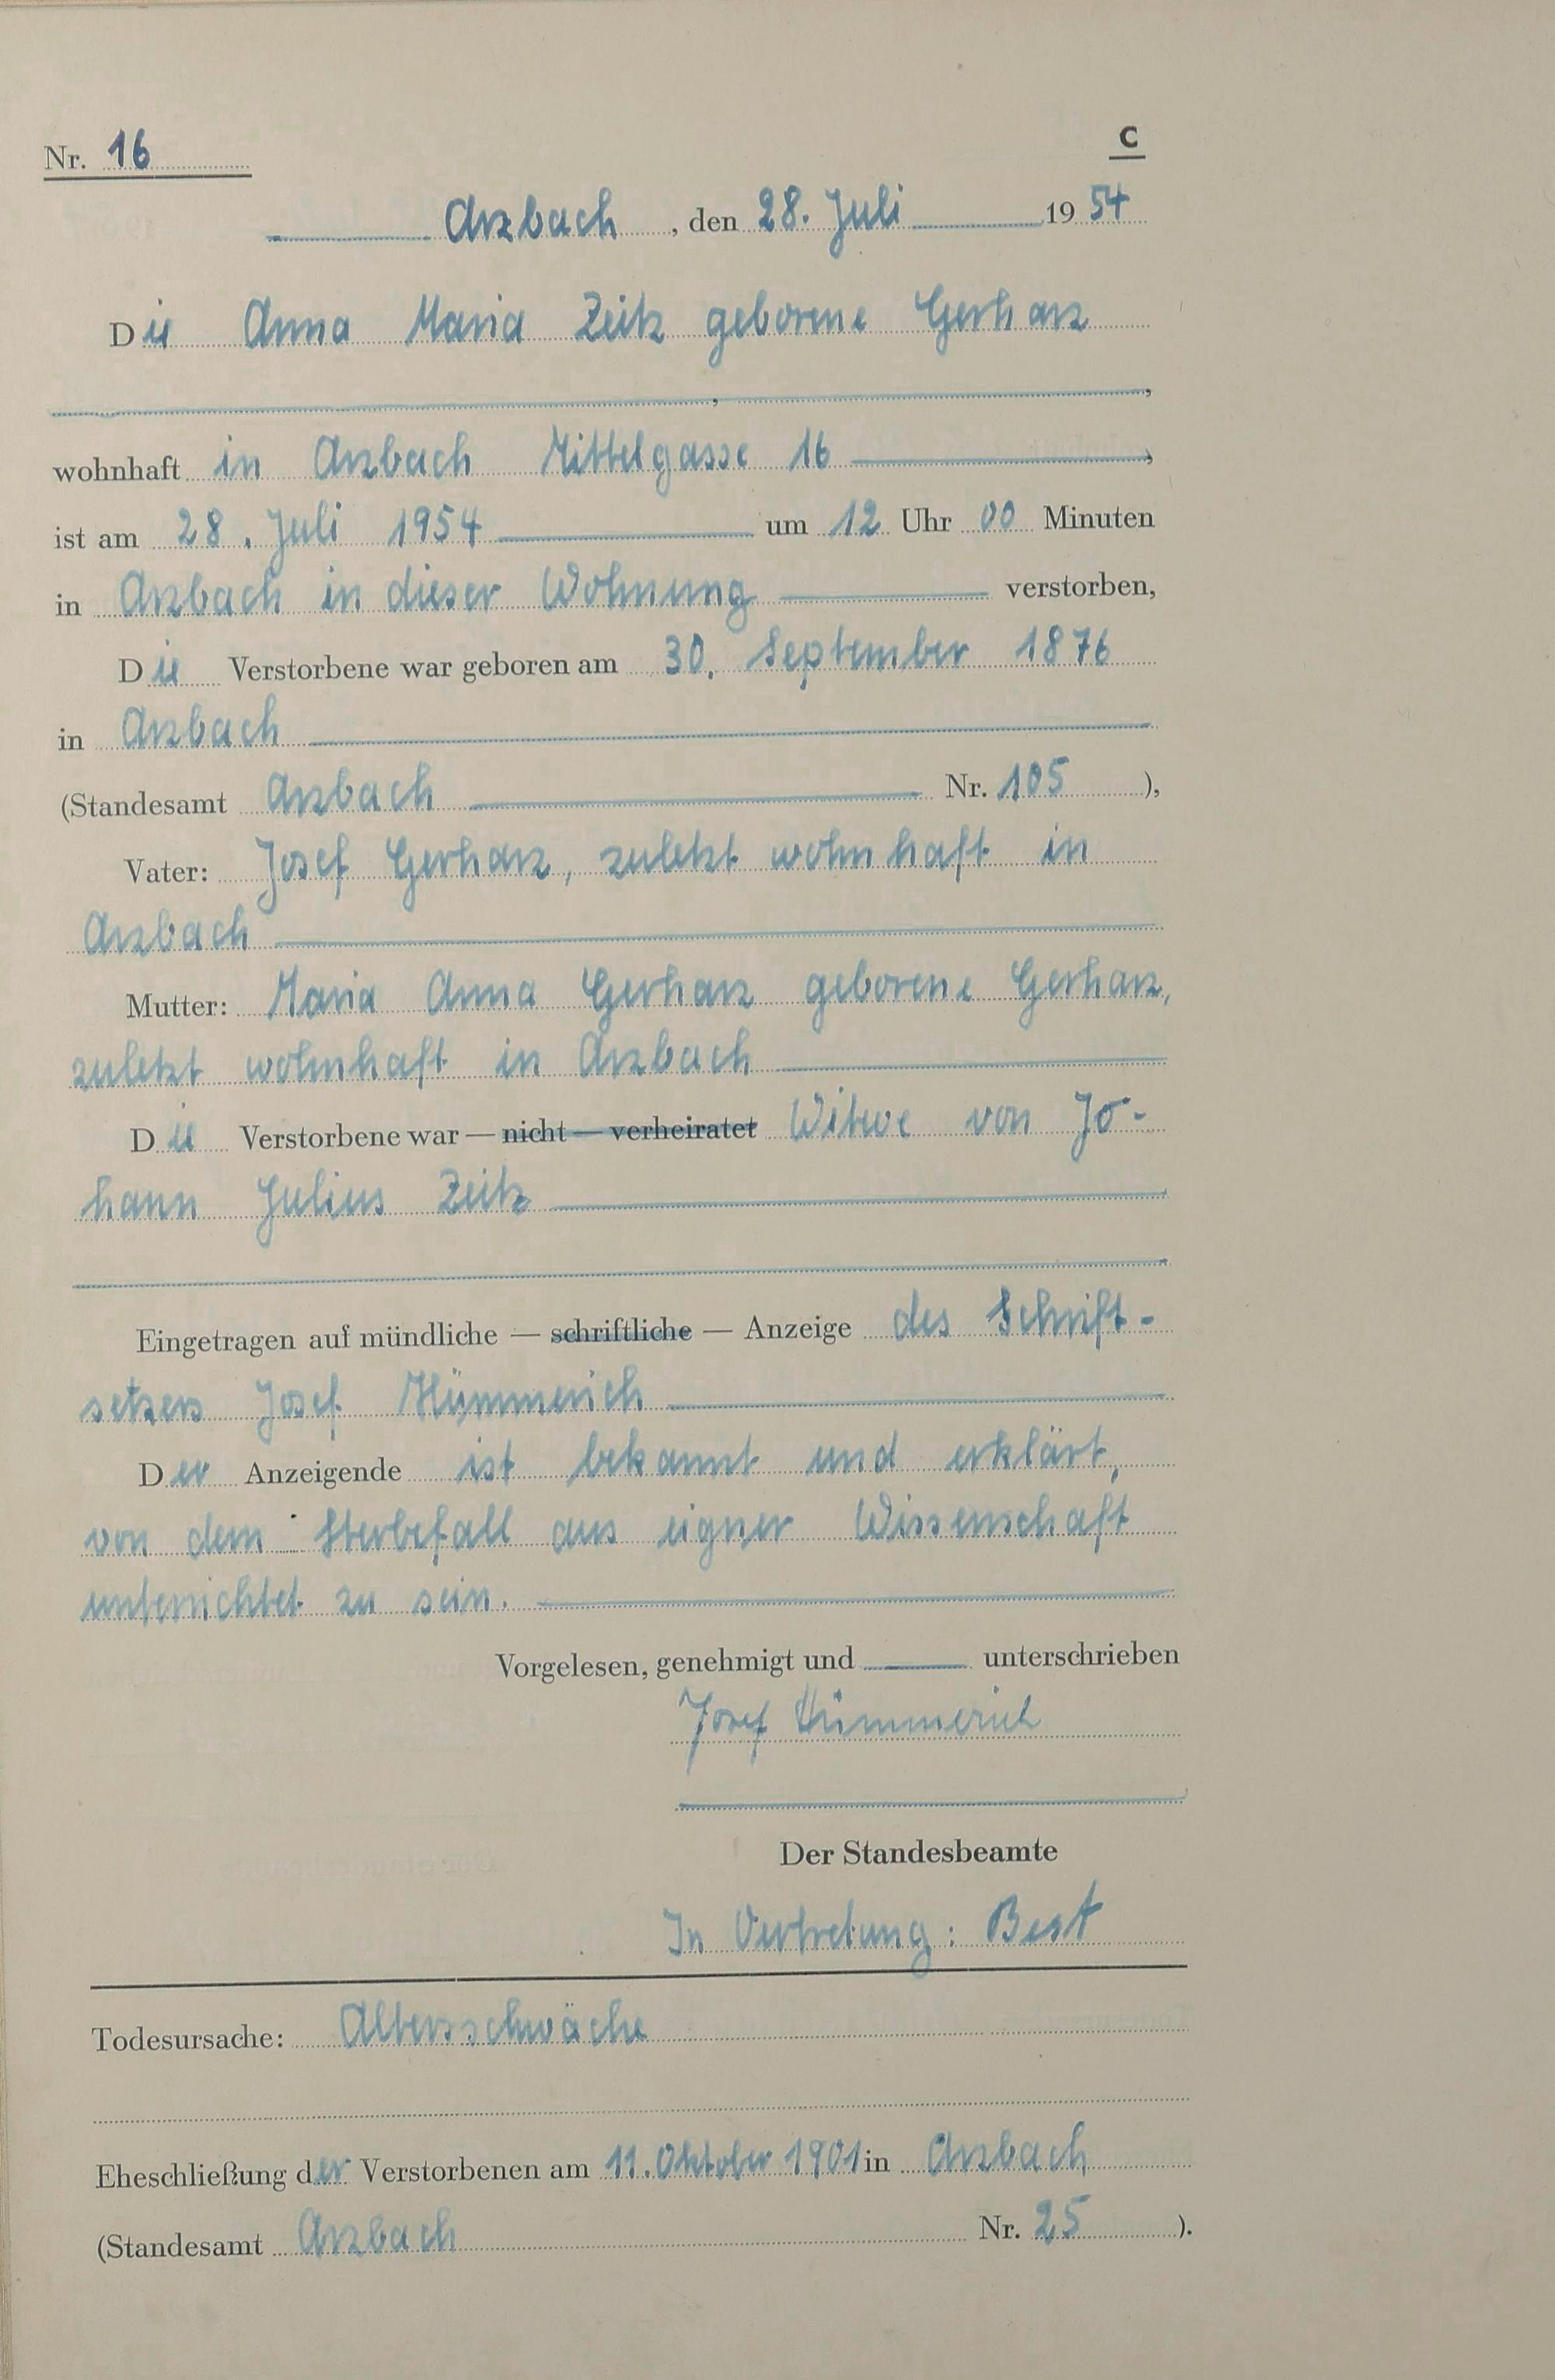 Nr. 16
C
Arzbach, den 28. Juli 1954
Die Anna Maria Zeitz geborene Gerharz
,,
wohnhaft in Arzbach Mittelgasse 16,
ist am 28. Juli 1954 um 12 Uhr 00 Minuten
in Arzbach in dieser Wohnung verstorben,
Die Verstorbene war geboren am 30. September 1876
in Arzbach
(Standesamt Arzbach Nr. 105),
Vater: Josef Gerharz, zuletzt wohnhaft in
Arzbach
Mutter: Maria Anna Gerharz geborene Gerharz,
zuletzt wohnhaft in Arzbach
Die Verstorbene war — nicht — verheiratet Witwe von Jo-
hann Julius Zeitz
Eingetragen auf mündliche — schriftliche — Anzeige des Schrift-
setzers Josef Hümmerich
Der Anzeigende ist bekannt und erklärt,
von dem Sterbefall aus eigner Wissenschaft
unterrichtet zu sein.
Vorgelesen, genehmigt und unterschrieben
Josef Hümmerich
Der Standesbeamte
In Vertretung: Best
Todesursache: Altersschwäche
Eheschließung der Verstorbenen am 11. Oktober 1901 in Arzbach
(Standesamt Arzbach Nr. 25).